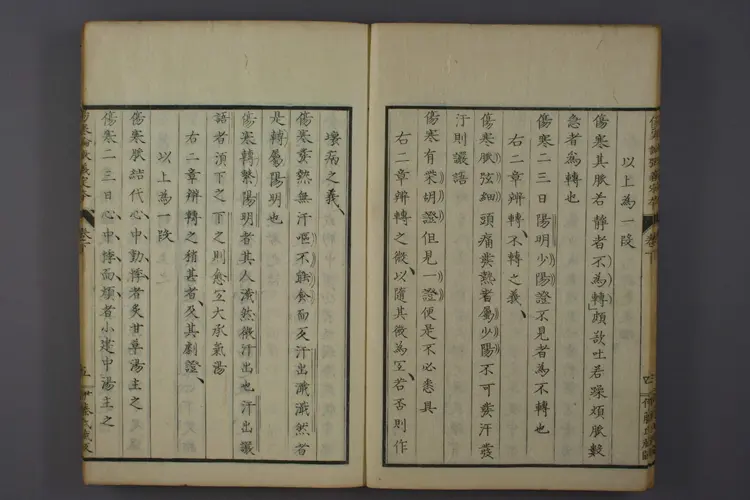 以上為一段
傷寒其脈若靜者不為轉頗欲吐若躁煩脈數
急者為轉也
傷寒二三日陽明少陽證不見者為不轉也
右二章辨轉不轉之義
傷寒脈弦細頭痛發熱者屬少陽不可發汗發
汗則讝語
傷寒有柴胡證但見一證便是不必悉具
右二章辨轉之徵以隨其徵為室若否則作
壞病之義
傷寒發熱無汗嘔不能食而反汗出濈濈然者
是轉屬陽明也
傷寒轉繫陽明者其人濈然微汗出也汗出讝
語者須下之下之則愈宜大承氣湯
右二章辨轉之稍甚者及其劇證
以上為一段
傷寒脈結代心中動悸者炙甘草湯主之
傷寒二三日心中悸而煩者小建中湯主之